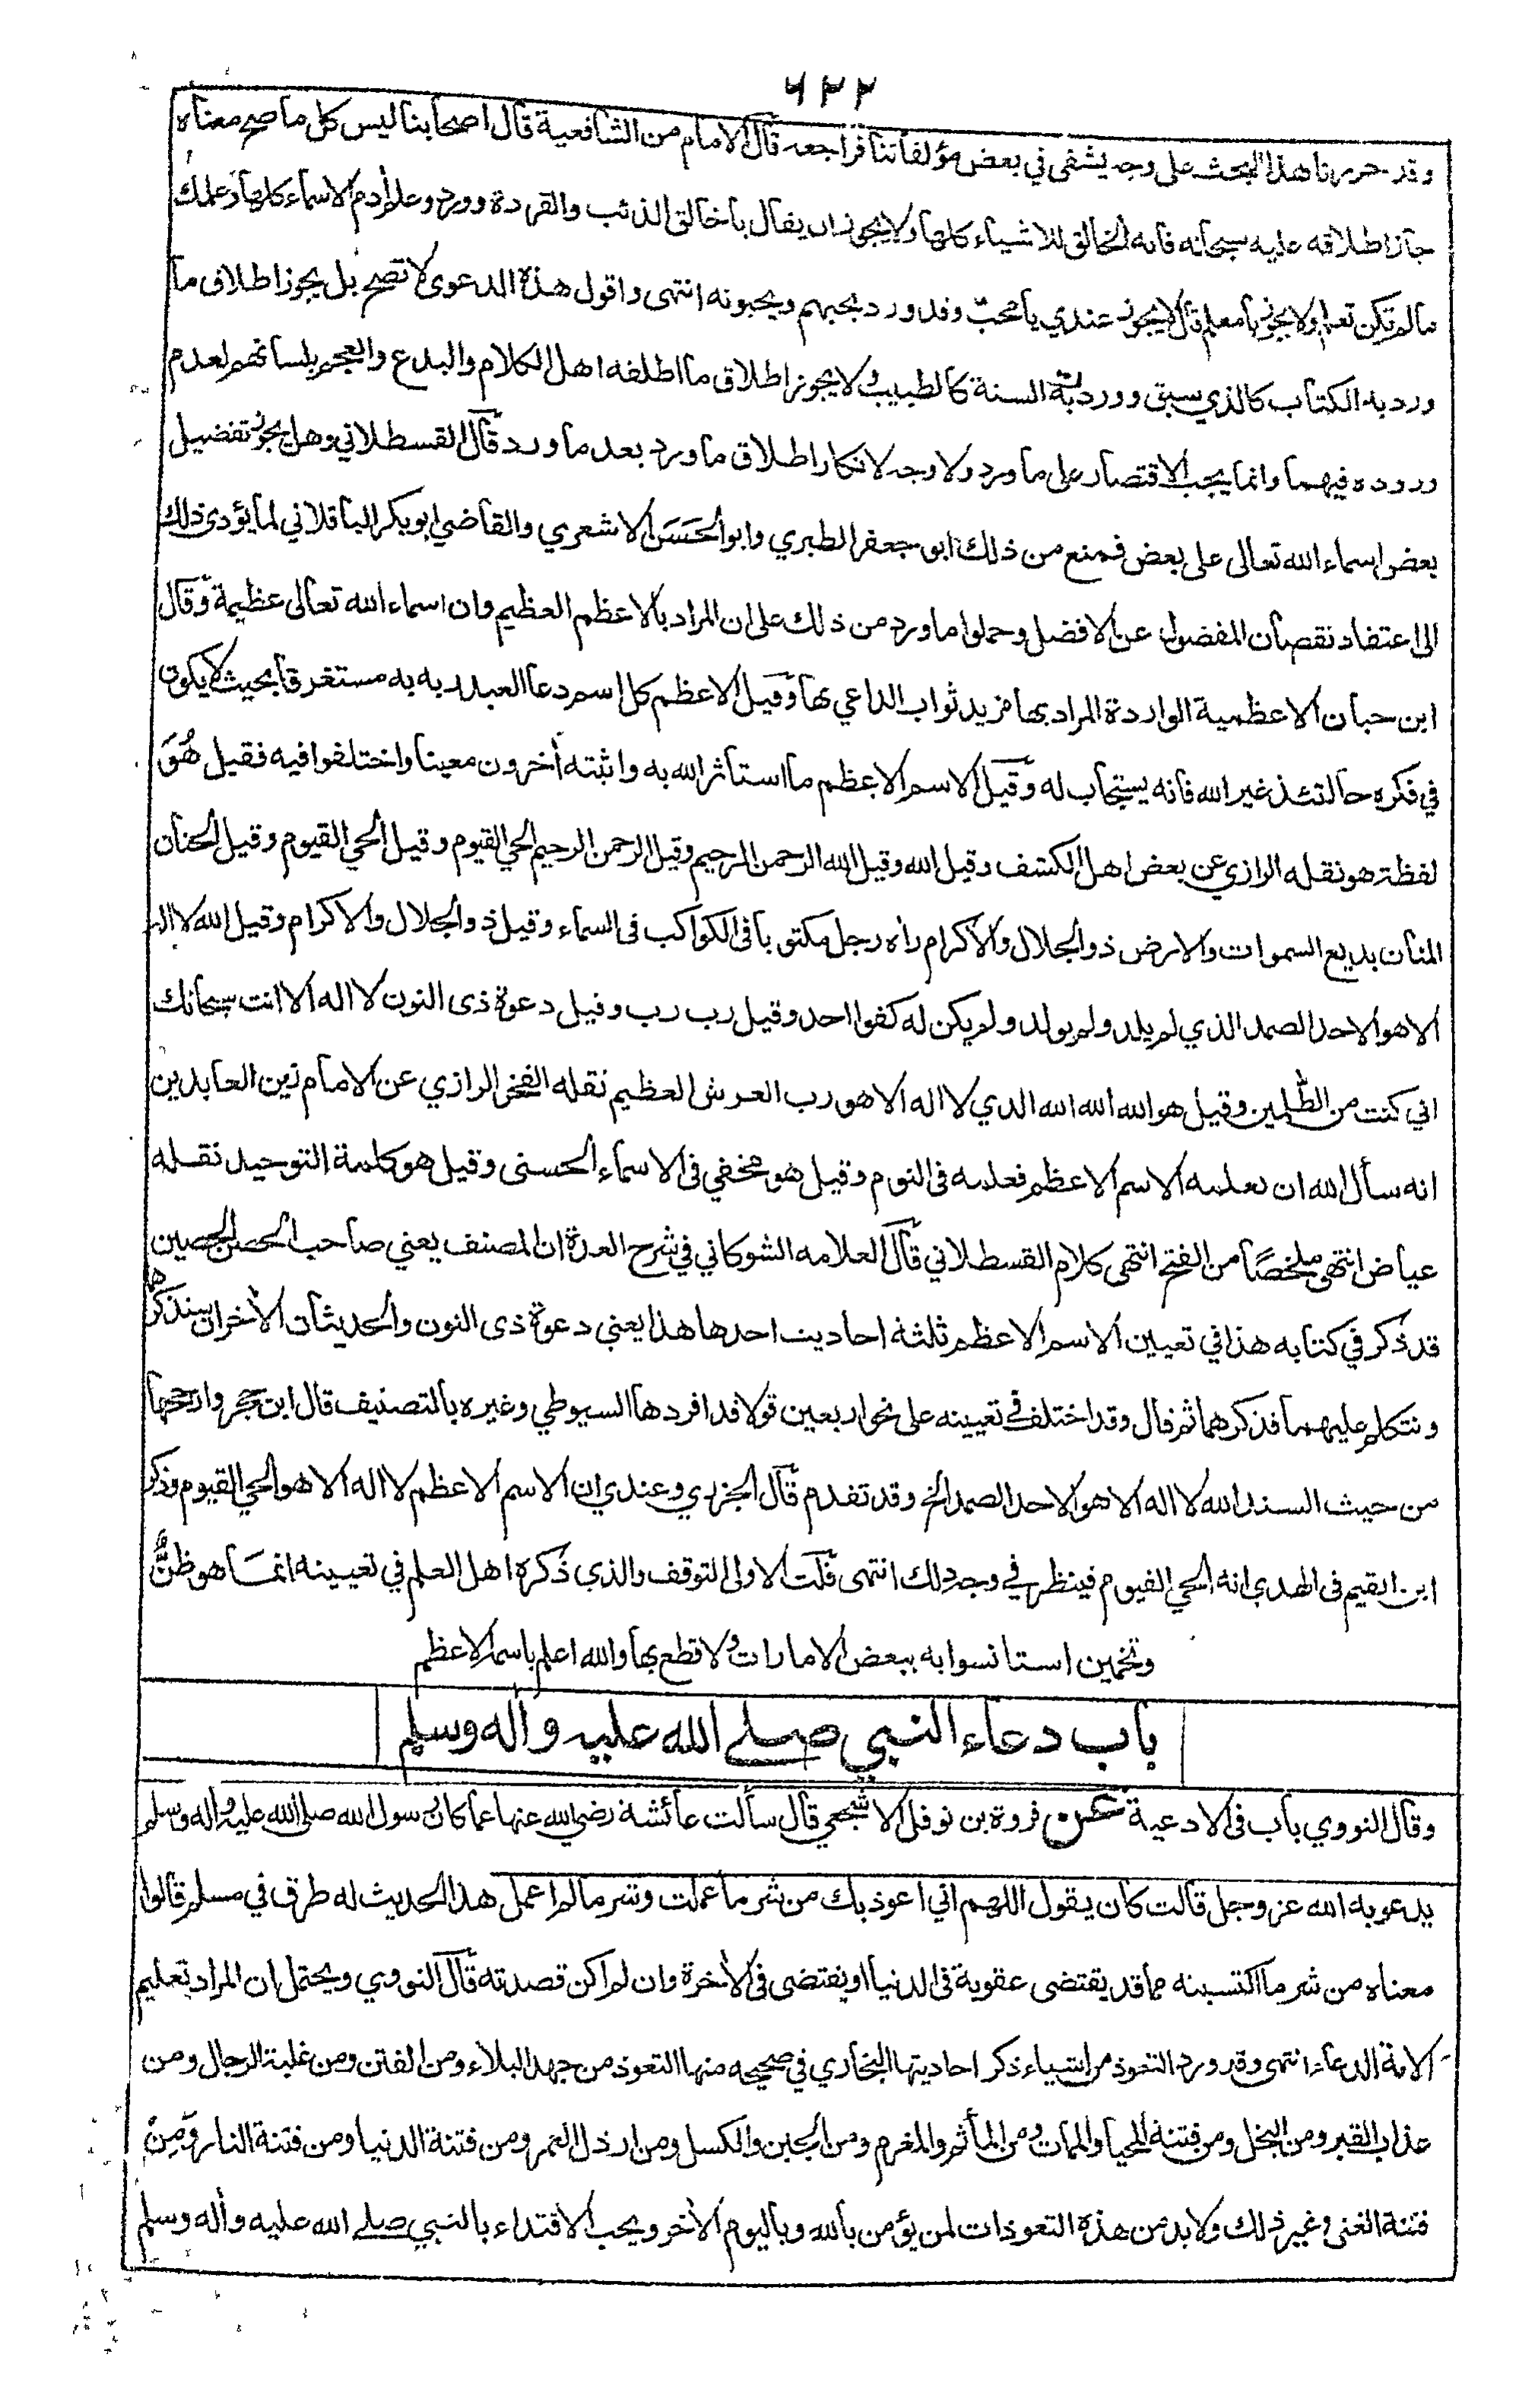 ٦٢٢
وقد حررنا هذا البحث على وجه يشفى في بعض مؤلفاتنا فراجعه قال الامام من الشافعية قال اصحابنا ليس كل ما صح معناه
جاز اطلاقه عليه سبحانه فانه الخالق للاشياء كلها ولا يجوز ان يقال يا خالق الذئب والقردة وورد وعلم أدم الاسماء كلها وعلمك
ما لم تكن تعلم ولا يجوز يا معلم قال ولا يجوز عندي يا محب وقد ورد يحبهم ويحبونه انتهى واقول هذه الدعوى لا تصح بل يجوز اطلاق ما
ورد به الكتاب كالذي سبق ووردت به السنة كالطبيب ولا يجوز اطلاق ما اطلقه اهل الكلام والبدع والعجم بلسانهم لعدم
وروده فيهما وانما يجب الاقتصار على ما ورد ولا وجه لانكار اطلاق ما ورد بعد ما ورد قال القسطلاني وهل يجوز تفضيل
بعض اسماء الله تعالى على بعض فمنع من ذلك ابو جعفر الطبري وابو الحسن الاشعري والقاضي ابو بكر الباقلاني لما يؤدي ذلك
الى اعتقاد نقصان المفضول عن الافضل وحملوا ما ورد من ذلك على ان المراد بالاعظم العظيم وان اسماء الله تعالى عظيمة وقال
ابن حبان الاعظمية الواردة المراد بها مزيد ثواب الداعي بها وقيل الاعظم كل اسم دعا العبد ربه به مستغرقا بحيث لا يكون
في فكره حالتئذ غير الله فانه يستجاب له وقيل الاسم الاعظم ما استأثر الله به واثبته أخرون معينا واختلفوا فيه فقيل هُوَ
لفظة هو نقله الرازي عن بعض اهل الكشف وقيل الله وقيل الله الرحمن الرحيم وقيل الرحمن الرحيم الحي القيوم وقيل الحي القيوم وقيل الحنان
المنان بديع السموات والارض ذو الجلال والاكرام رأه رجل مكتوبا في الكواكب في السماء وقيل ذو الجلال والاكرام وقيل الله لا اله
الا هو الاحد الصمد الذي لم يلد ولم يولد ولم يكن له كفوا احد وقيل رب رب وقيل دعوة ذى النون لا اله الا انت سبحانك
اني كنت من الظّلمين وقيل هو الله الله الله الذي لا اله الا هو رب العرش العظيم نقله الفخر الرازي عن الامام زين العابدين
انه سأل الله ان يعلمه الاسم الاعظم فعلمه في النوم وقيل هو مخفي في الاسماء الحسنى وقيل هو كلمة التوحيد نقله
عياض انتهى ملخصًا من الفتح انتهى كلام القسطلاني قال العلامه الشوكاني في شرح العدة ان المصنف يعني صاحب الحصن الحصين
قد ذكر في كتابه هذا في تعيين الاسم الاعظم ثلثة احاديث احدها هذا يعني دعوة ذى النون والحديثان الأخران سنذكرهما
ونتكلم عليهما فذكرهما ثم قال وقد اختلف في تعيينه على نحو اربعين قولا قد افردها السيوطي وغيره بالتصنيف قال ابن حجر وارجحها
من حيث السند الله لا اله الا هو الاحد الصمد الخ وقد تقدم قال الجزري وعندي ان الاسم الاعظم لا اله الا هو الحي القيوم وذكر
ابن القيم في الهدي انه الحي القيوم فينظر في وجه ذلك انتهى قلت الاولى التوقف والذي ذكره اهل العلم في تعيينه انما هو ظنٌّ
وتخمين استانسوا به ببعض الامارات ولا قطع بها والله اعلم باسمه الاعظم
باب دعاء النبي صلى الله عليه وأله وسلم
وقال النووي باب في الادعية عن فروة بن نوفل الاشجعي قال سألت عائشة رضي الله عنها عما كان رسول الله صلى الله عليه وأله وسلم
يدعو به الله عز وجل قالت كان يقول اللهم اني اعوذ بك من شر ما عملت وشر ما لم اعمل هذا الحديث له طرق في مسلم قالوا
معناه من شر ما اكتسبته مما قد يقتضى عقوبة في الدنيا او يقتضى في الأخرة وان لم اكن قصدته قال النووي ويحتمل ان المراد تعليم
الامة الدعاء انتهى وقد ورد التعوذ من اشياء ذكر احاديثها البخاري في صحيحه منها التعوذ من جهد البلاء ومن الفتن ومن غلبة الرجال ومن
عذاب القبر ومن البخل ومن فتنة المحيا والممات ومن المأثم والمغرم ومن الجبن والكسل ومن ارذل العمر ومن فتنة الدنيا ومن فتنة النار ومِنْ
فتنة الغنى وغير ذلك ولا بد من هذه التعوذات لمن يؤمن بالله وباليوم الأخر ويجب الاقتداء بالنبي صلى الله عليه وأله وسلم